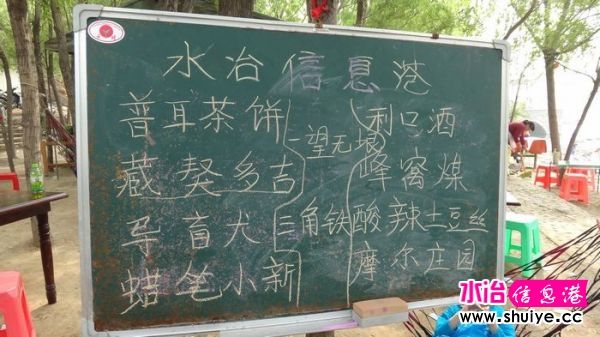 水冶信息港
普耳茶饼
藏獒多吉
导盲犬
蜡笔小新
一望无垠
三角铁
利口酒
峰窝煤
酸辣土豆丝
摩尔庄园
水冶信息港
www.shuiye.cc